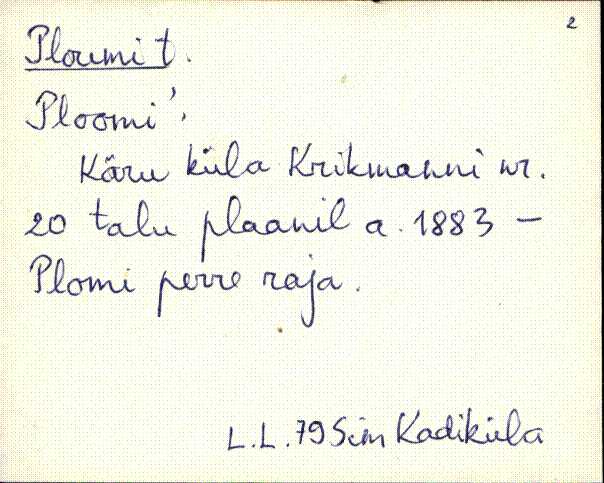 2
Ploomi t.
Ploomi',
Käru küla Krikmanni nr.
20 talu plaanil a. 1883 –
Plomi perre raja.
L.L. 79 Sim Kadiküla